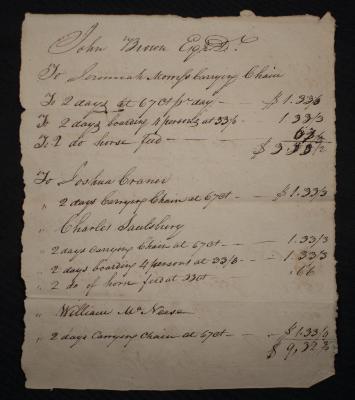 John Brown Esqr Dr.
To Jeremiah Morris Carrying Chain
To 2 days at 67 Ct pr day - $1.33/3
To 2 days boarding 4 persons at 33/3 1 33/3
To 2 do horse feed -
To Joshua Craner
" 2 days Carrying Chain at 67 Ct - $1.33/3
" Charles Saulsbury
" 2 days Carrying Chain at 67 Ct - 1.33/3
" 2 days boarding 4 persons at 33/3 - 1.333
" 2 do of horse feed at 33 Ct .66
" William Mc Neese
" 2 days Carrying Chain at 67 Ct - $1.33/3